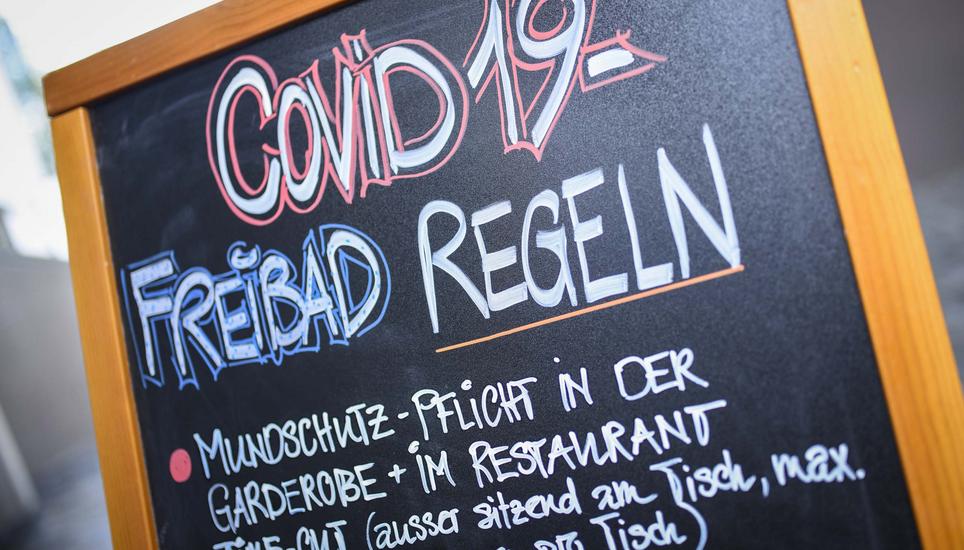 COVID 19-
FREIBAD REGELN
MUNDSCHUTZ-PFLICHT IN DER
GARDEROBE + IM RESTAURANT
TIME-OUT (ausser sitzend am Tisch, max.
pro Tisch)